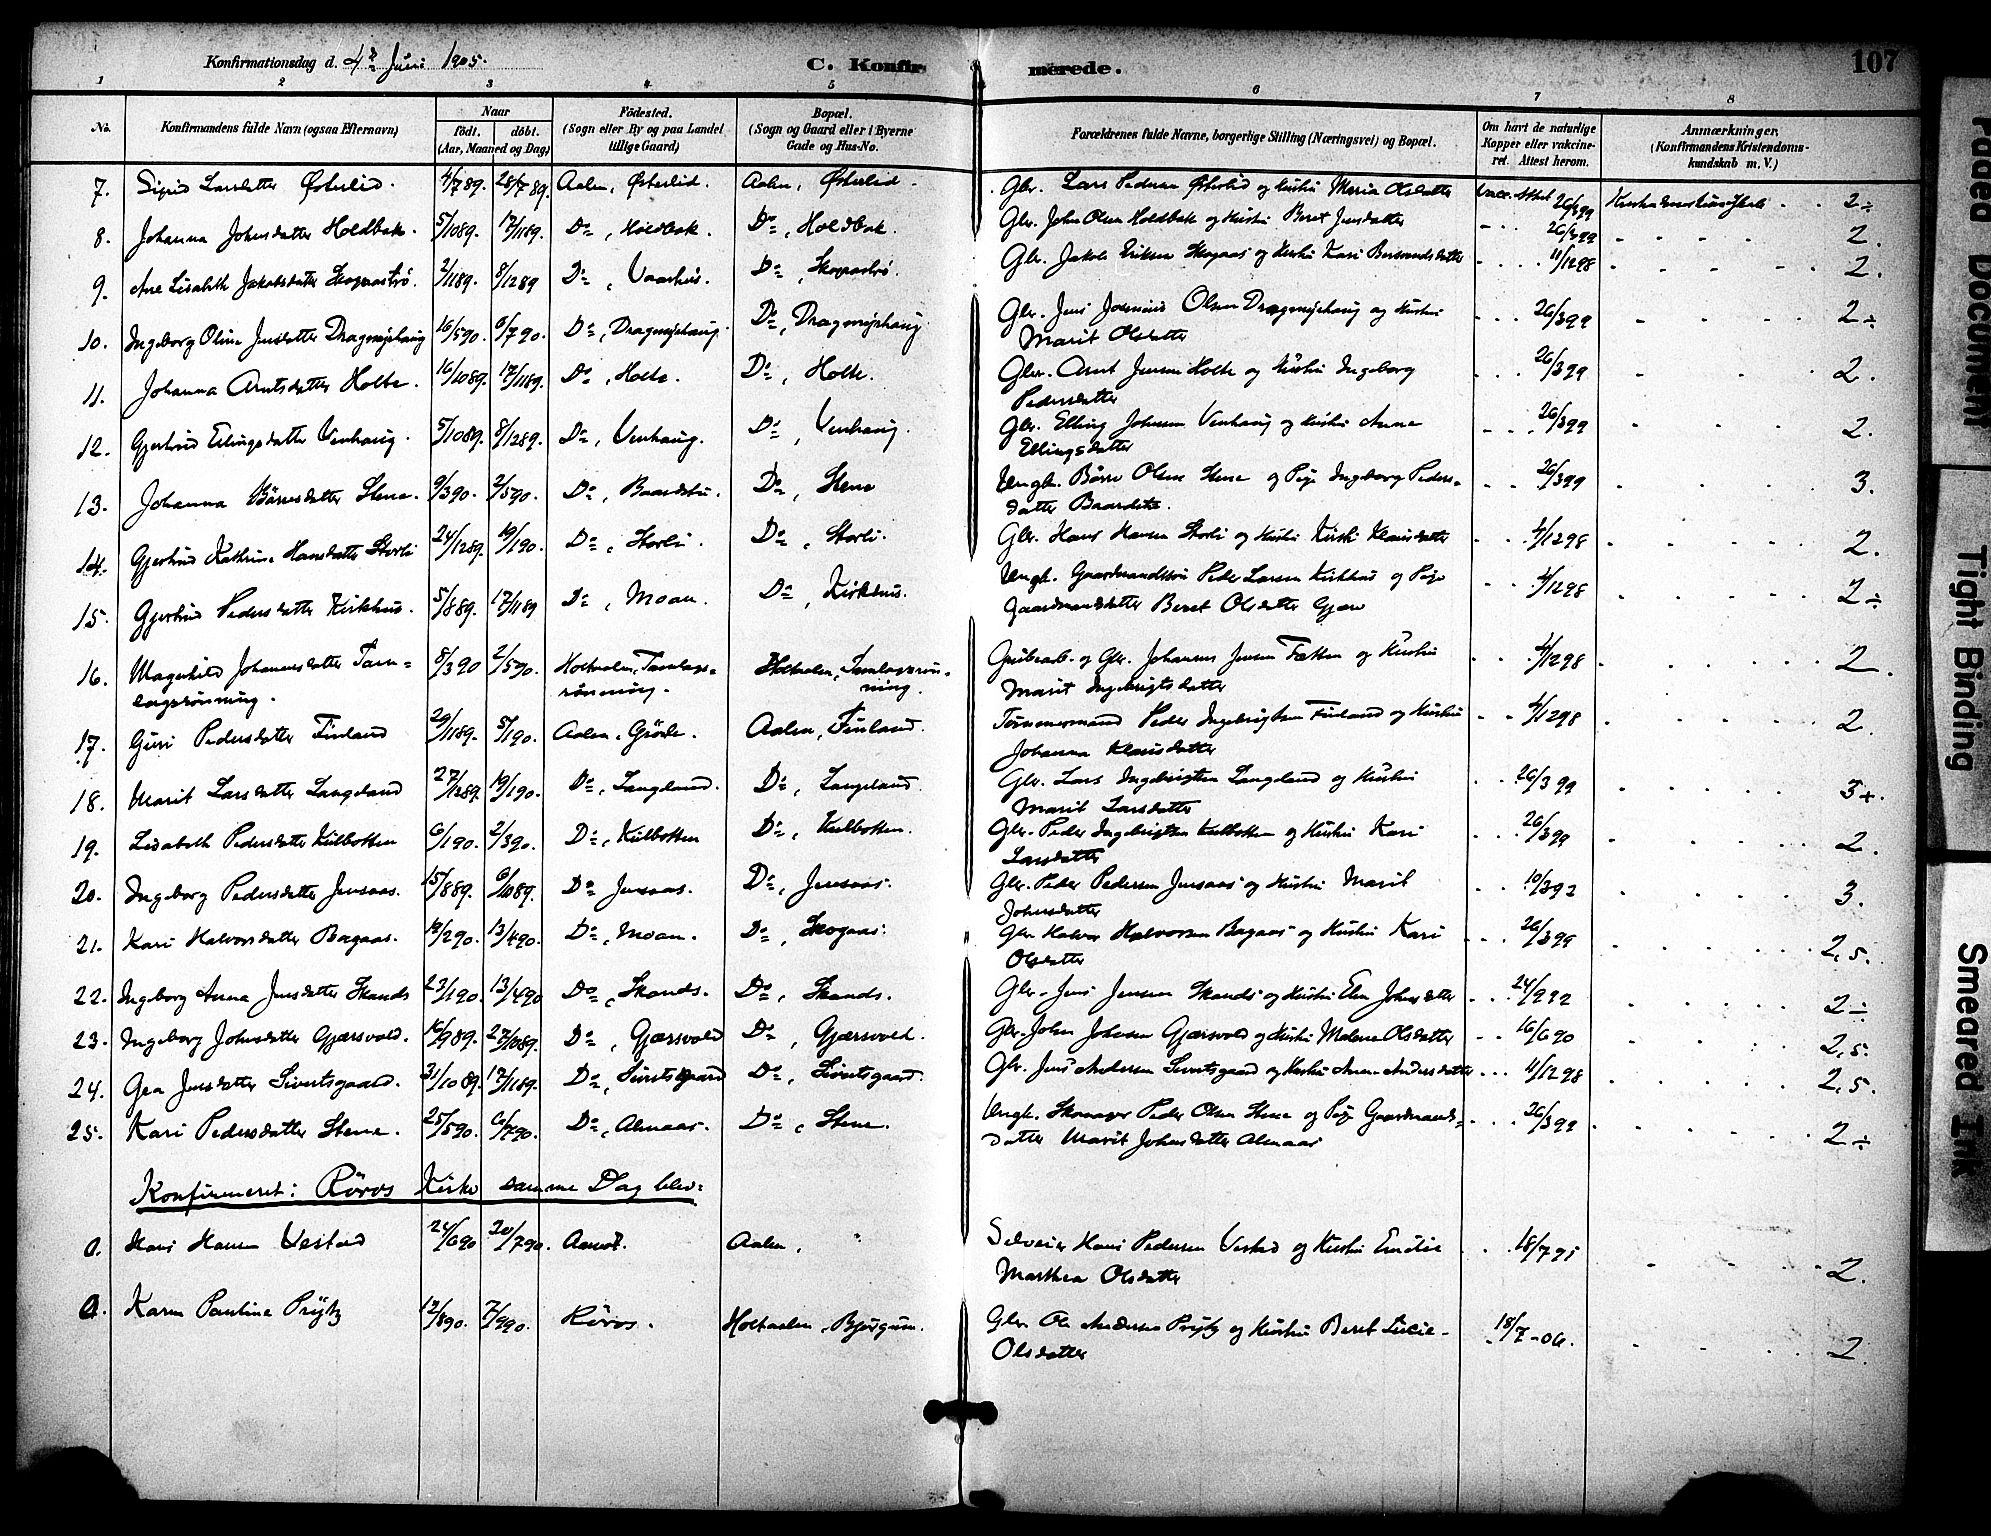 Konfirmationsdag d. 4de Juni 1905.
C. Konfirmerede.
107
1 2 3 4 5 6 7 8
No.
Konfirmandens fulde Navn (ogsaa Efternavn)
Naar
födt. döbt.
(Aar, Maaned og Dag)
Födested.
(Sogn eller By og paa Landet
tillige Gaard)
Bopæl.
(Sogn og Gaard eller i Byerne
Gade og Hus-No.
Forældrenes fulde Navne, borgerlige Stilling (Næringsvei) og Bopæl.
Om havt de naturlige
Kopper eller vakcine-
ret. Attest herom.
Anmærkninger.
(Konfirmandens Kristendoms-
kundskab m. V.)
7. Sigrid Larsdatter Østerlid. 4/789. 28/789. Aalen, Østerlid. Aalen, Østerlid. Gbr. Lars Pedersen Østerlid og Hustru Maria Olsdatter Vacc. Attest 26/399 2÷
8. Johanna Johnsdatter Holdbak. 5/1089. 17/1189. Do, Holdbak. Do, Holdbak. Gbr. John Olsen Holdbak og Hustru Beret Jensdatter 26/399 2.
9. Ane Lisabeth Jakobsdatter 2/1189. 8/1289 Do, Vaarhus. Do, Gbr. Jakob Eriksen Skogaas og Hustru Kari 11/1298 2.
10. Ingeborg Oline Jensdatter Dragmyrhaug 16/590. 6/790. Do, Dragmyrhaug. Do, Dragmyrhaug Gbr. Jens Olsen Dragmyrhaug og Hustru 26/399 2÷
Marit Olsdatter
11. Johanna Arntsdatter Holte. 16/1089. 17/1189. Do, Holte. Do, Holte. Gbr. Arnt Jensen Holte og Hustru Ingeborg 26/399 2.
Pedersdatter
12. Gjertrud Ellingsdatter Venhaug. 5/1089. 8/1289. Do, Venhaug. Do, Venhaug. Gbr. Elling Johnsen Venhaug og Hustru Anne 26/399 2.
Ellingsdatter
13. Johanna Børresdatter Stene. 9/390. 2/590. Do, Baardstu. Do, Stene Ungk. Børre Olsen Stene og Pige Ingeborg Peders- 26/399 3.
datter
14. Gjertrud Kathrine Hansdatter Storli 24/1289. 19/190. Do, Storli. Do, Storli. Gbr. Hans Hansen Storli og Hustru Kirsti Klausdatter 4/1298 2.
15. Gjertrud Pedersdatter Kirkhus. 5/889. 17/1189 Do, Moan. Do, Kirkhus. Ungk. Gaardmandssøn Peder Larsen Kirkhus og Pige 4/1298 2÷
Gaardmandsdatter Beret Olsdatter
16. Magnhild Johannesdatter Tam= 8/390 2/590. Holtaalen, Tamlags= Holtaalen, Tamlagsrøn- Grubearb. og Gbr. Johannes Jensen og Hustru 4/1298 2.
lagsrønning. rønning. ning. Marit Ingebrigtsdatter
17. Guri Pedersdatter Finland 29/1189. 5/190. Aalen, Aalen, Finland. Tømmermand Peder Ingebrigtsen Finland og Hustru 4/1298 2.
Johanna Klausdatter
18. Marit Larsdatter Langeland 27/1289. 19/190. Do, Langeland. Do, Langeland. Gbr. Lars Ingebrigtsen Langeland og Hustru 26/399 3+.
Marit Larsdatter
19. Lisabeth Pedersdatter Kulbotten 6/190. 2/390. Do, Kulbotten Do, Kulbotten. Gbr. Peder Ingebrigtsen Kulbotten og Hustru Kari 26/399 2.
Larsdatter
20. Ingeborg Pedersdatter Jensaas. 15/889. 6/1089. Do Jensaas. Do, Jensaas. Gbr. Peder Pedersen Jensaas og Hustru Marit 10/392 3.
Johnsdatter
21. Kari Halvorsdatter Bagaas. 290. 13/490. Do, Moan. Do, Skogaas. Gbr. Halvor Halvorsen Bagaas og Hustru Kari 26/399 2,5.
Olsdatter
22. Ingeborg Anna Jensdatter Skands 23/190. 13/490 Do, Skands. Do, Skands. Gbr. Jens Jensen Skands og Hustru Elen Johnsdatter 24/992 2÷
23. Ingeborg Johnsdatter Gjærsvold. 16/989. 27/1089. Do, Gjærsvold Do, Gjærsvold. Gbr. John Johnsen Gjærsvold og Hustru Malene Olsdatter 16/690 2,5.
24. Gea Jensdatter Sivertsgaard. 31/1089. 17/1189. Do, Sivertsgaard Do, Sivertsgaard. Gbr. Jens Andersen Sivertsgaard og Hustru Anne Andersdatter 11/1298 2,5.
25. Kari Pedersdatter Stene. 25/590. 6/790. Do, Almaas. Do, Stene. Ungk. Skomager Peder Olsen Stene og Pige Gaardmands= 26/399 2÷
datter Marit Johnsdatter Almaas
Konfirmeret i Röros Kirke samme Dag blev:
0. Hans Hansen Vestad 24/690 20/790. Aamot. Aalen, Hans Pedersen Vestad og Hustru Emilie 18/791 2.
Marthea Olsdatter
0. Karen Pauline Prÿtz 12/890. 7/990. Röros. Holtaalen, Bjørgum. Gbr. Ole Andersen Prÿtz og Hustru Beret Lucie 18/7-06. 2.
Olsdatter
Faded Document
Tight Binding
Smeared Ink